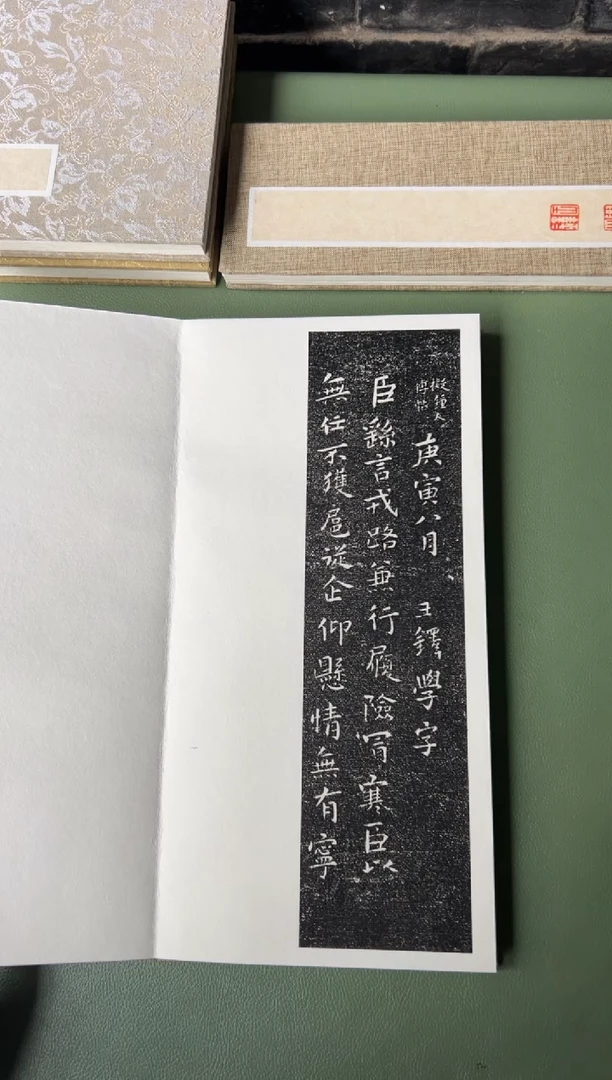 擬鍾太
傅帖
庚寅八月 王鐸學字
臣繇言戎路兼行履險冒寒臣以
無任不獲扈從企仰懸情無有寧